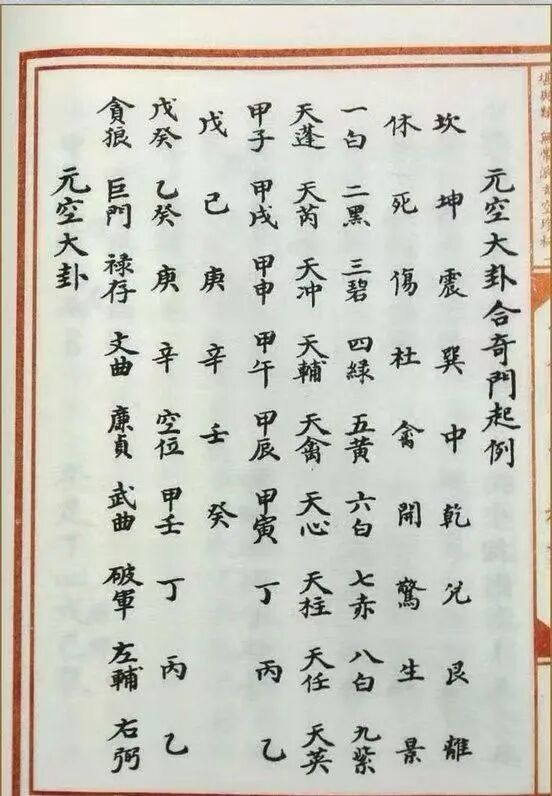 元空大卦合奇門起例
坎 坤 震 巽 中 乾 兌 艮 離
休 死 傷 杜 禽 開 驚 生 景
一白 二黑 三碧 四綠 五黃 六白 七赤 八白 九紫
天蓬 天芮 天冲 天輔 天禽 天心 天柱 天任 天英
甲子 甲戌 甲申 甲午 甲辰 甲寅 丁 丙 乙
戊 己 庚 辛 壬 癸
戊癸 乙癸 庚 辛 空位 甲壬 丁 丙 乙
貪狼 巨門 祿存 文曲 廉貞 武曲 破軍 左輔 右弼
元空大卦